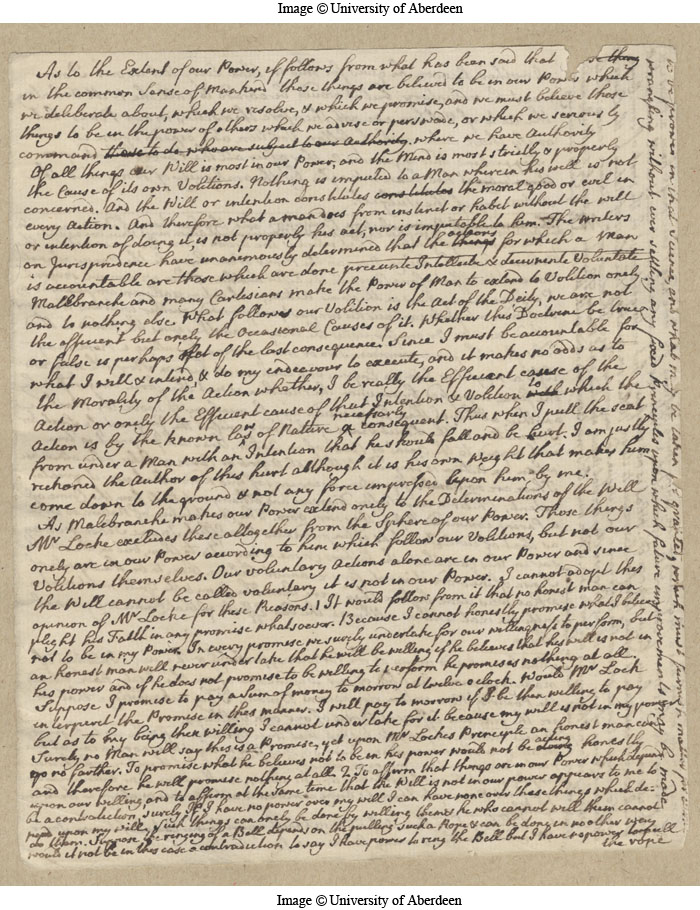 Image © University of Aberdeen
As to the Extent of our Power, it follows from what has been said that thing
in the common Sense of Mankind those things are believed to be in our Power which
we deliberate about, which we resolve, & which we promise, and we must believe those
things to be in the power of others which we advise or perswade, or which we seriously
command those to do who are subject to our Authority. where we have Authority
Of all things our Will is most in our Power, and the Mind is most strictly & properly
the Cause of its own Volitions. Nothing is imputed to a Man wherein his will is not
concerned. And the Will or intention constitutes constitutes the moral good or evil in
every Action. And therefore what a man does from instinct or habit without the will
or intention of doing it, is not properly his act, nor is imputable to him. The writers
on Jurisprudence have unanimously determined that the things actions for which a Man
is accountable are those which are done præeunte Intellectu & decernente Voluntate
Mallbranche and many Cartesians make the Power of Man to extend to Volition onely
and to nothing else. What follows our Volition is the Act of the Deity, we are not
the efficient but onely the Occasional Causes of it. Whether this Doctrine be true
or false is perhaps not of the last consequence. Since I must be accountable for
what I will & intend & do my endeavour to execute, and it makes no odds as to
the Morality of the Action whether, I be really the Efficient cause of the
Action or onely the Efficient cause of that Intention & Volition to which the
Action is by the known laws of Nature necessarily consequent. Thus when I pull the seat
from under a Man with an Intention that he should fall and be hurt. I am justly
reckoned the Author of this hurt although it is his own Weight that makes him
come down to the ground & not any force impressed upon him by me.
As Malebranche makes our Power extend onely to the Determinations of the Will
Mr Locke excludes these altogether from the Sphere of our Power. Those things
onely are in our Power acording to him which follow our Volitions, but not our
Volitions themselves. Our voluntary Actions alone are in our Power and since
the Will cannot be called voluntary it is not in our Power. I cannot adopt this
opinion of Mr Locke for these Reasons. 1 It would follow from it that no honest man can
plight his Faith in any promise whatsoever. Because I cannot honestly promise what I believe
not to be in my Power. In every promise we surely undertake for our willingness to perform, but
an honest man will never undertake that he will be willing if he believes that his will is not in
his power and if he does not promise to be willing to perform he promises nothing at all.
Suppose I promise to pay a Sum of money to morrow at twelve o clock. Would Mr Lock
interpret the Promise in this manner. I will pay to morrow if I be then willing to pay
but as to my being then willing I cannot undertake for it because my will is not in my power
Surely no Man will say this is a Promise, yet upon Mr Lockes Principle an honest man can
go no farther. To promise what he believes not to be in his power would not be acting honestly
and therefore he will promise nothing at all. 2 To affirm that things are in our Power which depend
upon our willing and to affirm at the same time that the Will is not in our power appears to me to
be a contradiction, surely If I have no power over my will I can have none over these things which de-
pend upon my will, & such things can onely be done by willing them & he who cannot will them cannot
do them. Suppose the ringing of a Bell depends on the pulling such a Rope & can be done in no other way
would it not be in this case a contradiction to say I have power to ring the Bell but I have no power to pull
the rope
to be proven in that Science, and what may be taken for granted, without
wrangling without our settling any fixed principles upon which future improvements may be made
Image © University of Aberdeen